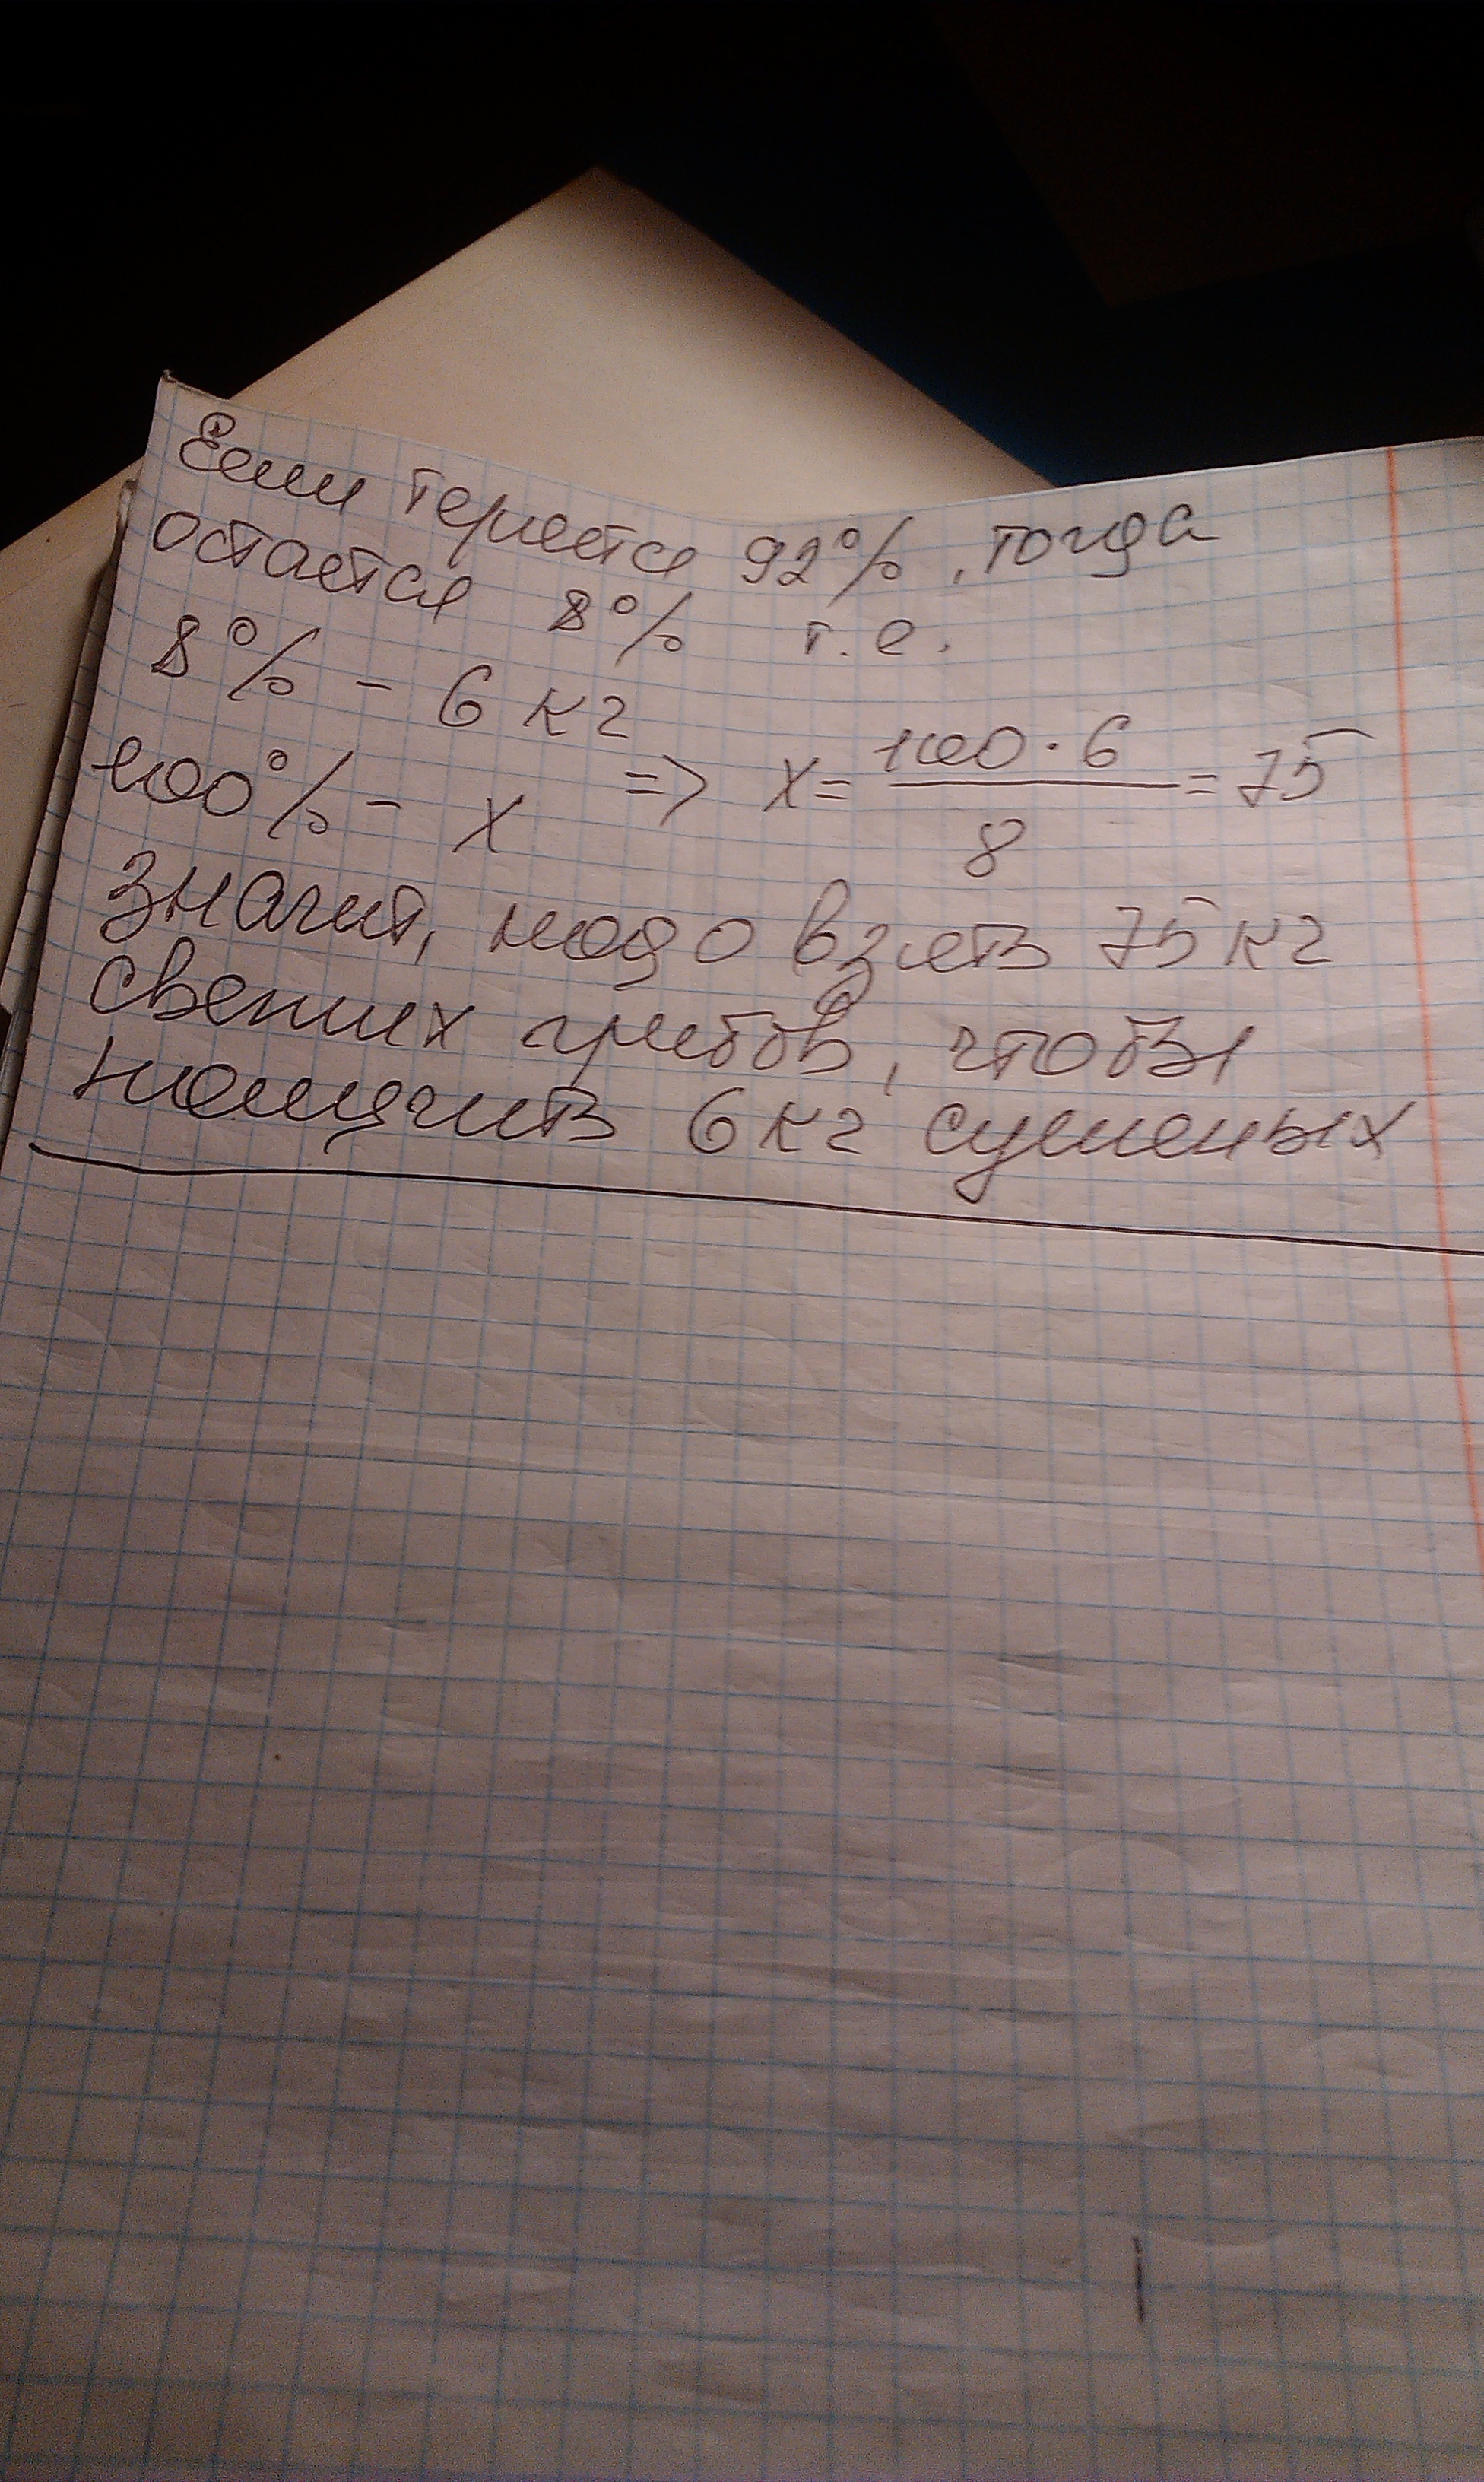 Если теряется 92%, тогда
остается 8% т.е.
8% - 6 кг
100% - х => х = 100 · 6 / 8 = 75
значит, надо взять 75 кг
свежих грибов, чтобы
получить 6 кг сушеных